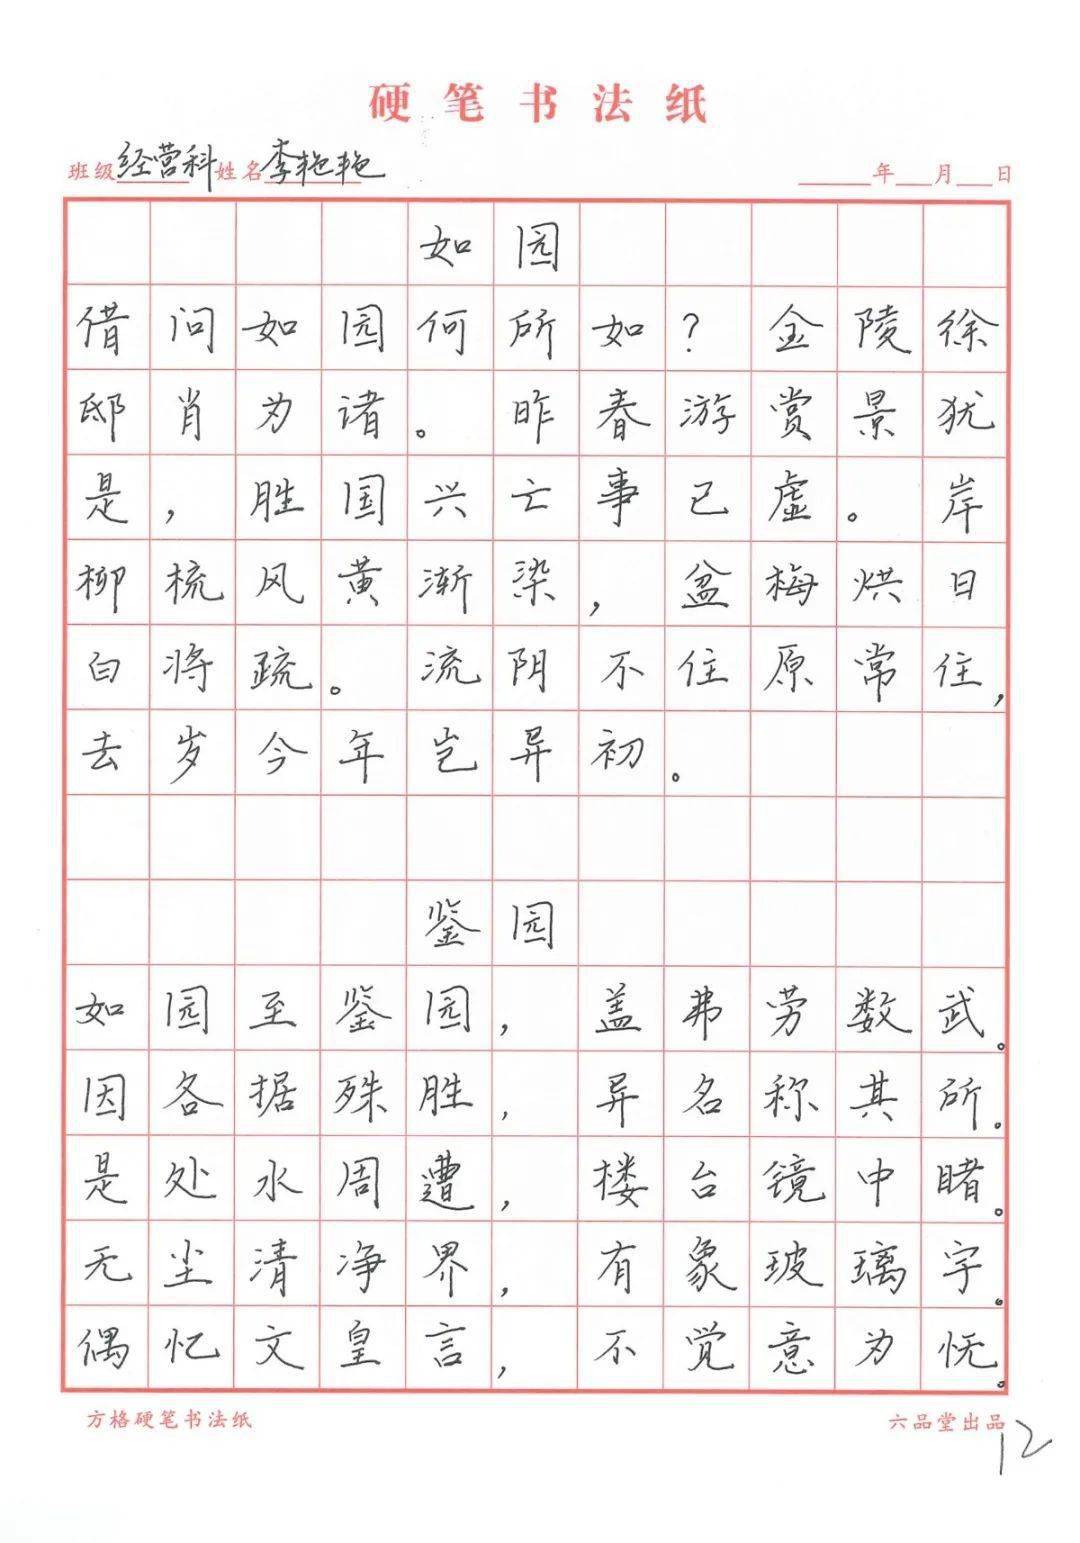 硬笔书法纸
班级 经营科 姓名 李艳艳 年 月 日
如园
借问如园何所如？金陵徐
邸肖为诸。昨春游赏景犹
是，胜国兴亡事已虚。岸
柳梳风黄渐染，盆梅烘日
白将疏。流阴不住原常住，
去岁今年岂异初。
鉴园
如园至鉴园，盖弗劳数武。
因各据殊胜，异名称其所。
是处水周遭，楼台镜中睹。
无尘清净界，有象玻璃宇。
偶忆文皇言，不觉意为怃。
方格硬笔书法纸 六品堂出品
12